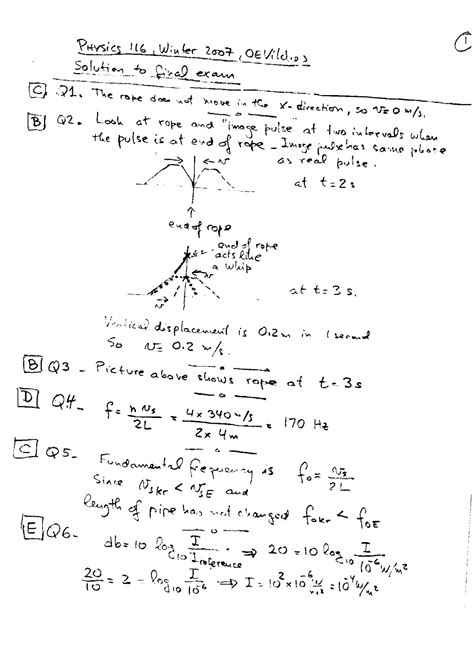 1
Physics 116, Winter 2007, O E Vilches
Solution to final exam
C Q1. The rope does not move in the X-direction, so v=0 m/s.
B Q2. Look at rope and "image pulse" at two intervals when
the pulse is at end of rope - Image pulse has same phase
as real pulse.
v
at t=2s
end of rope
end of rope
acts like
a whip
v
at t=3s.
v
Vertical displacement is 0.2m in 1 second
So v= 0.2 m/s.
B Q3 - Picture above shows rope at t=3s
D Q4- f= n vs / 2L = 4 x 340 m/s / 2 x 4m = 170 Hz
C Q5- Fundamental frequency is f0= vs / 2L
Since vskr < vsE and
length of pipe has not changed f0kr < f0E
E Q6- db=10 log10 I / Ireference ⇒ 20=10 log10 I / 10^-6 W/m²
20/10 = 2 = log10 I / 10^-6 ⇒ I=10² x 10^-6 W/m² = 10^-4 W/m²